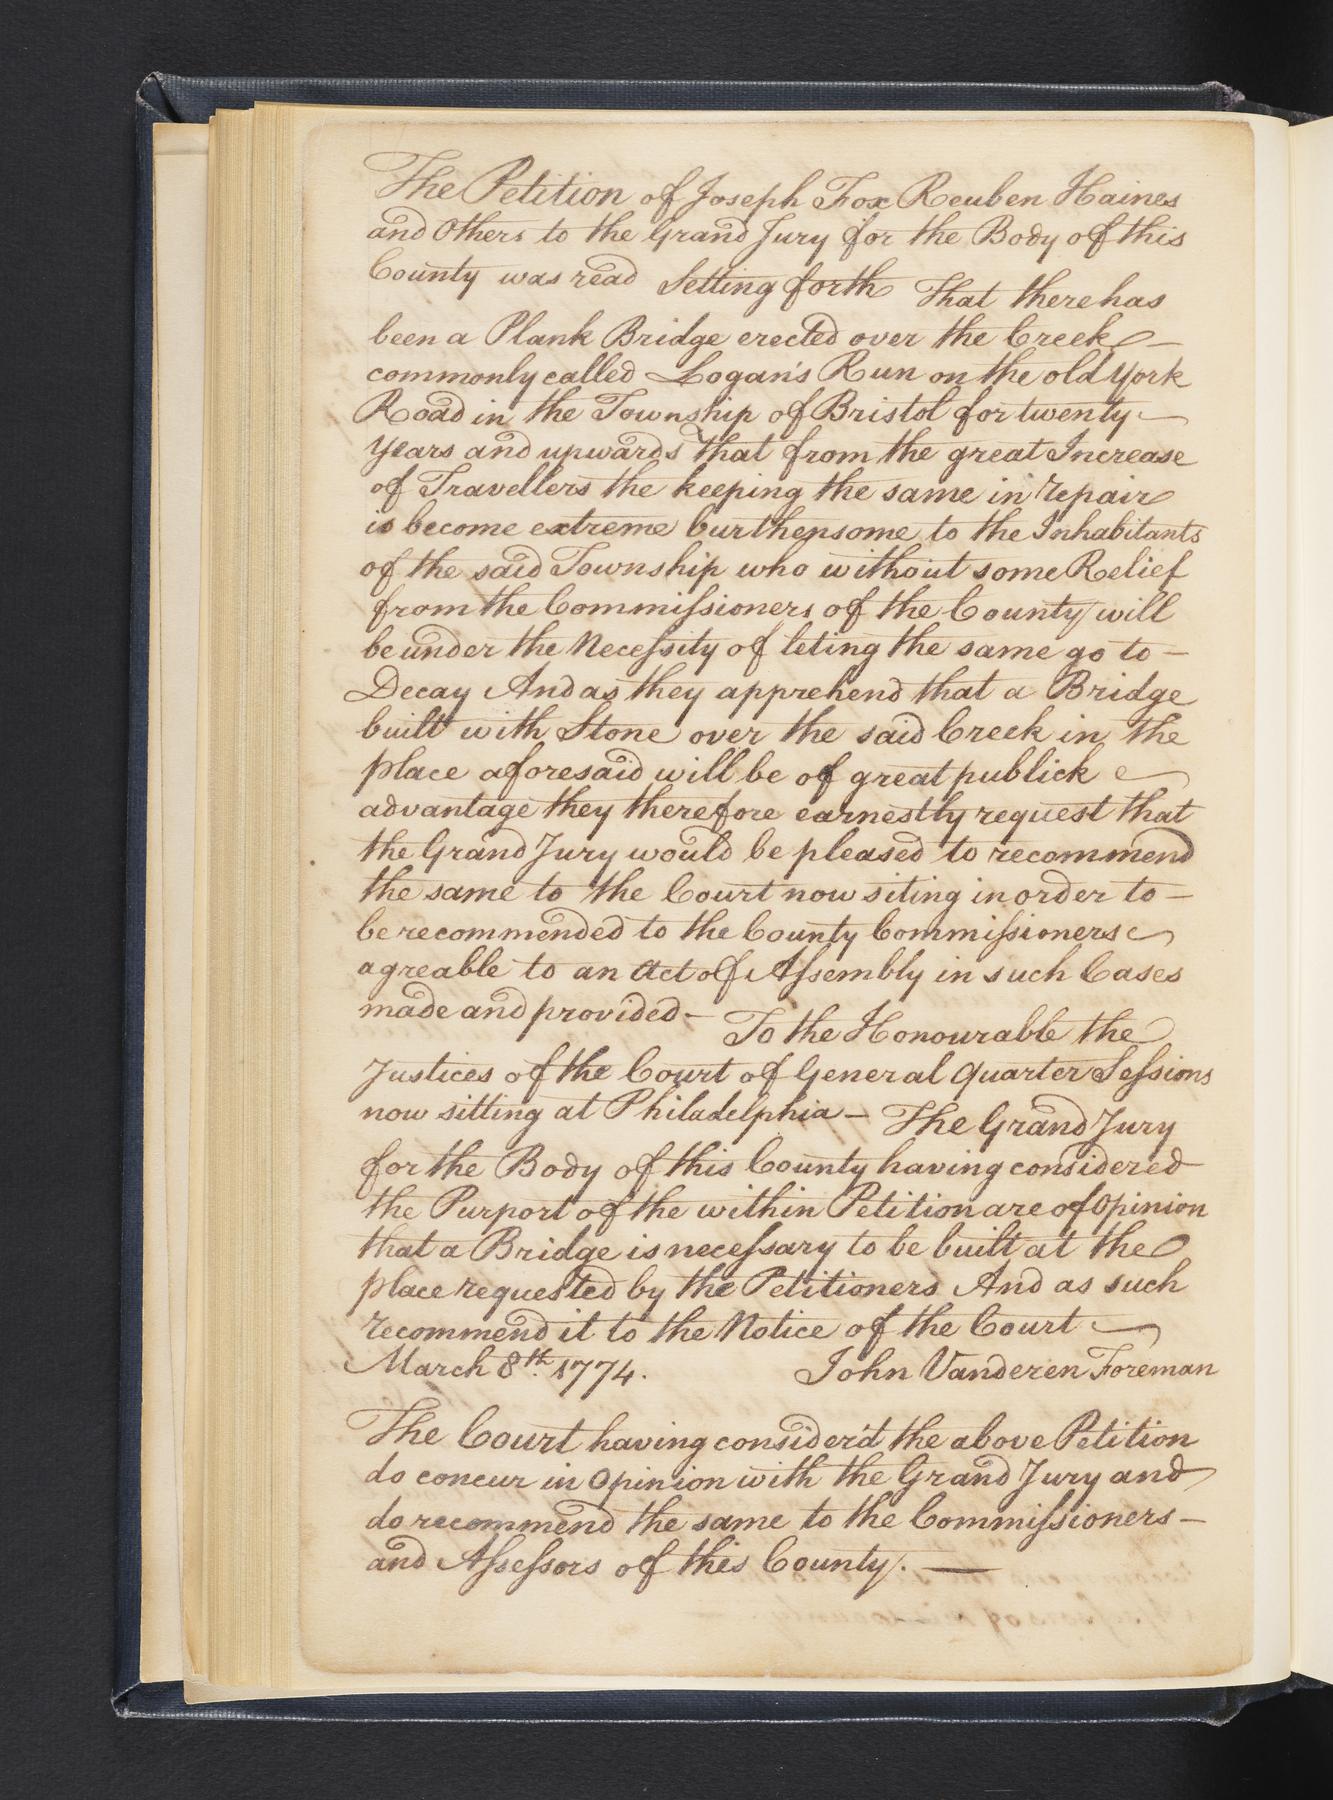 The Petition of Joseph Fox Reuben Haines
and Others to the Grand Jury for the Body of this
County was read Setting forth That there has
been a Plank Bridge erected over the Creek —
commonly called Logan's Run on the old York
Road in the Township of Bristol for twenty —
Years and upwards that from the great Increase
of Travellers the keeping the same in repair
is become extreme burthensome to the Inhabitants
of the said Township who without some Relief
from the Commiſsioners of the County will
be under the Neceſsity of leting the same go to —
Decay And as they apprehend that a Bridge
built with Stone over the said Creek in the
place aforesaid will be of great publick
advantage they therefore earnestly request that
the Grand Jury would be pleased to recommend
the same to the Court now siting in order to —
be recommended to the County Commiſsioners
agreable to an Act of Aſsembly in such Cases
made and provided — To the Honourable the
Justices of the Court of General Quarter Seſsions
now sitting at Philadelphia — The Grand Jury
for the Body of this County having considered
the Purport of the within Petition are of Opinion
that a Bridge is neceſsary to be built at the
place requested by the Petitioners And as such
recommend it to the Notice of the Court —
March 8th. 1774. John Vanderen Foreman
The Court having consider'd the above Petition
do concur in Opinion with the Grand Jury and
do recommend the same to the Commiſsioners —
and Aſseſsors of this County. —